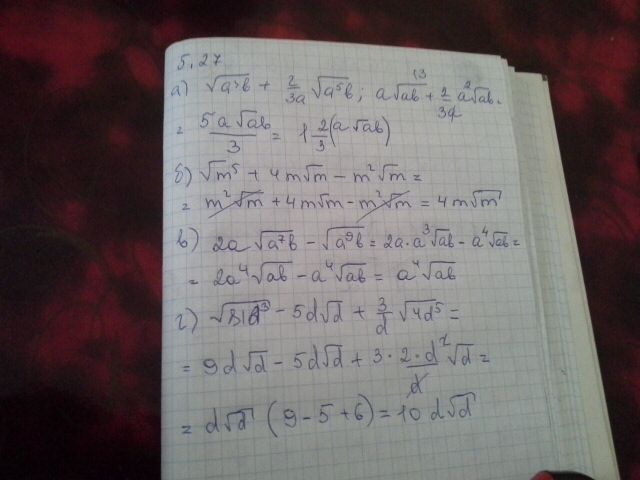 5.27
а) √a³b + 2/3a √a⁵b; a√ab + 2/3a a²√ab =
= 5a√ab/3 = 1 2/3 (a√ab)
б) √m⁵ + 4m√m - m²√m =
= m²√m + 4m√m - m²√m = 4m√m
в) 2a√a⁷b - √a⁹b = 2a·a³√ab - a⁴√ab =
= 2a⁴√ab - a⁴√ab = a⁴√ab
г) √81d³ - 5d√d + 3/d √4d⁵ =
= 9d√d - 5d√d + 3·2·d²/d √d =
= d√d (9-5+6) = 10d√d